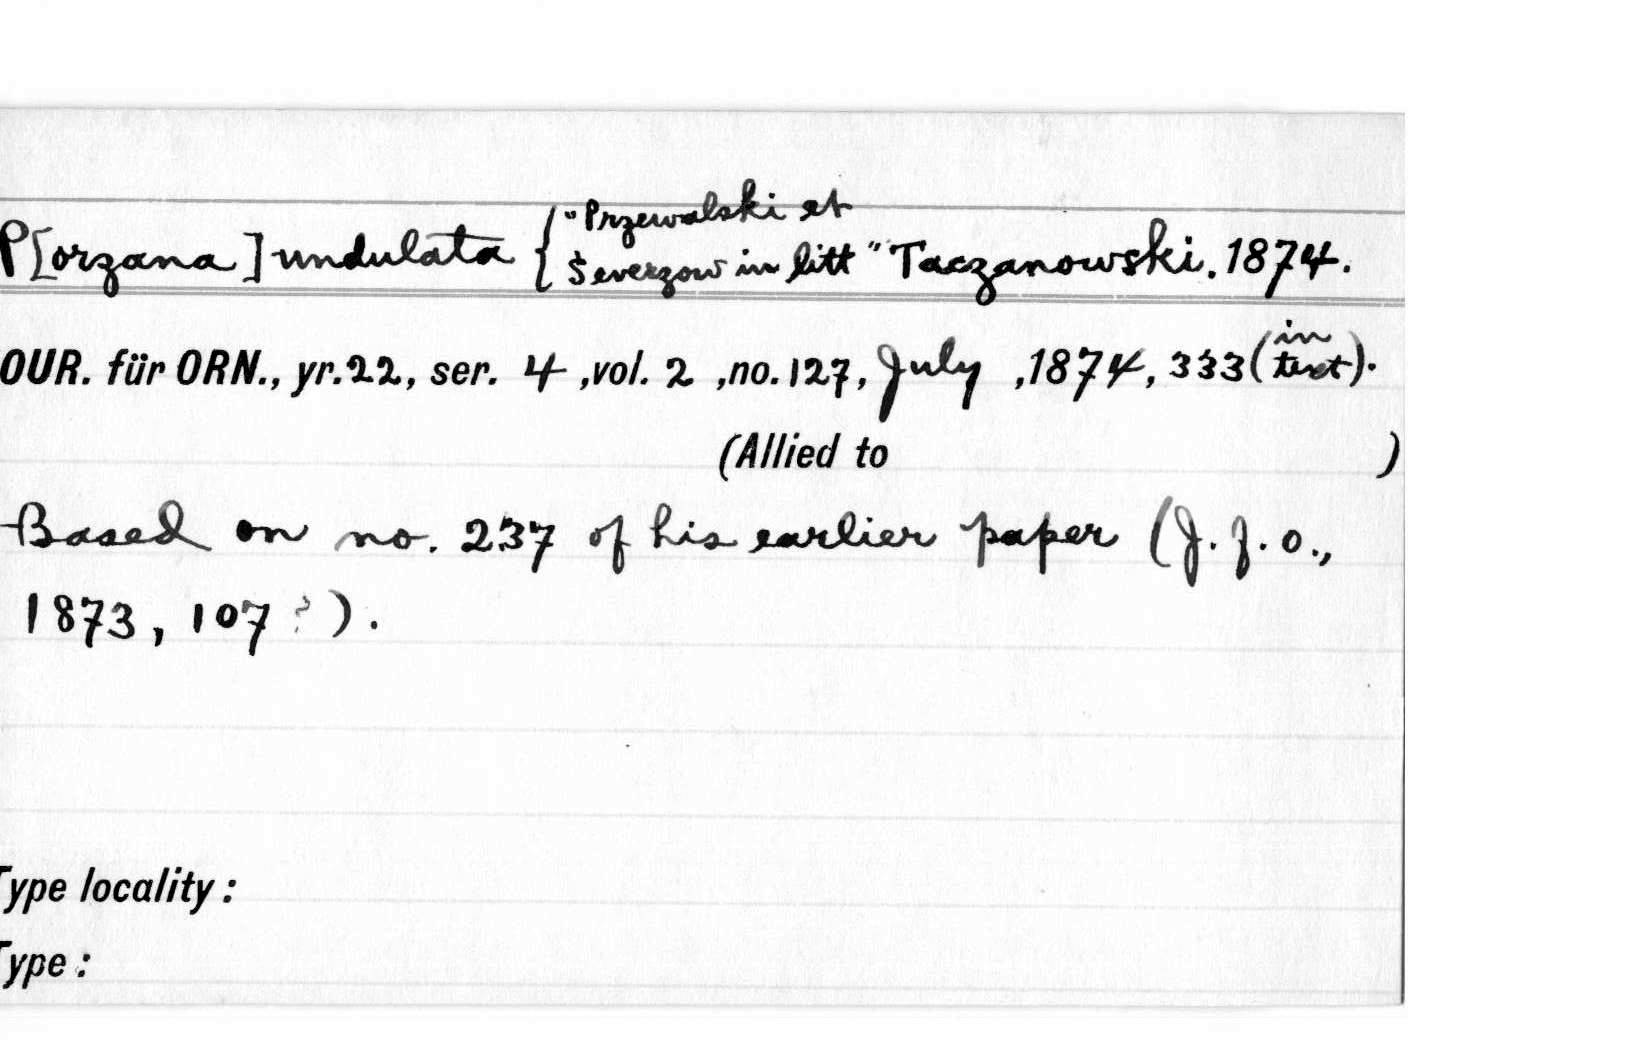 P[orzana] undulata { "Przewalski et
Severzow in litt" Taczanowski. 1874.
OUR. für ORN., yr. 22, ser. 4 ,vol. 2 ,no. 127, July ,1874, 333 (in text).
(Allied to )
Based on no. 237 of his earlier paper (J. f. o.,
1873, 107 ? ).
Type locality :
Type :